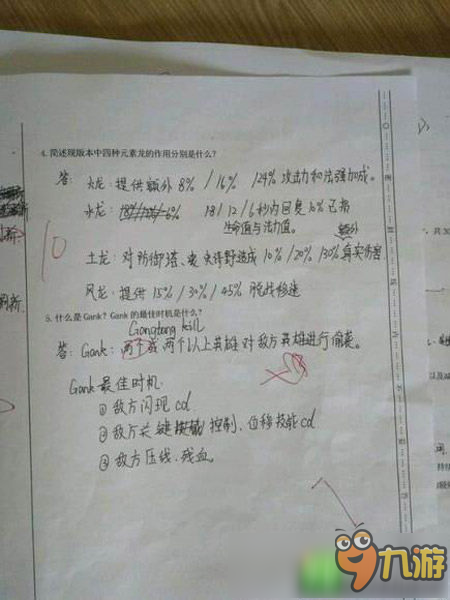 4. 简述现版本中四种元素龙的作用分别是什么?
答: 火龙: 提供额外 8% / 16% / 24% 攻击力和法强加成。
水龙: 18 / 12 / 6秒内回复 10% 已损
生命值与法力值。
额外
土龙: 对防御塔、史诗野造成 10% / 20% / 30% 真实伤害
风龙: 提供 15% / 30% / 45% 脱战移速
5. 什么是Gank? Gank 的最佳时机是什么?
Gangtong kill
答: Gank: 两个或两个以上英雄对敌方英雄进行偷袭。
Gank 最佳时机:
① 敌方闪现 cd
② 敌方关键 控制、位移技能 cd
③ 敌方压线、残血。
10
九游